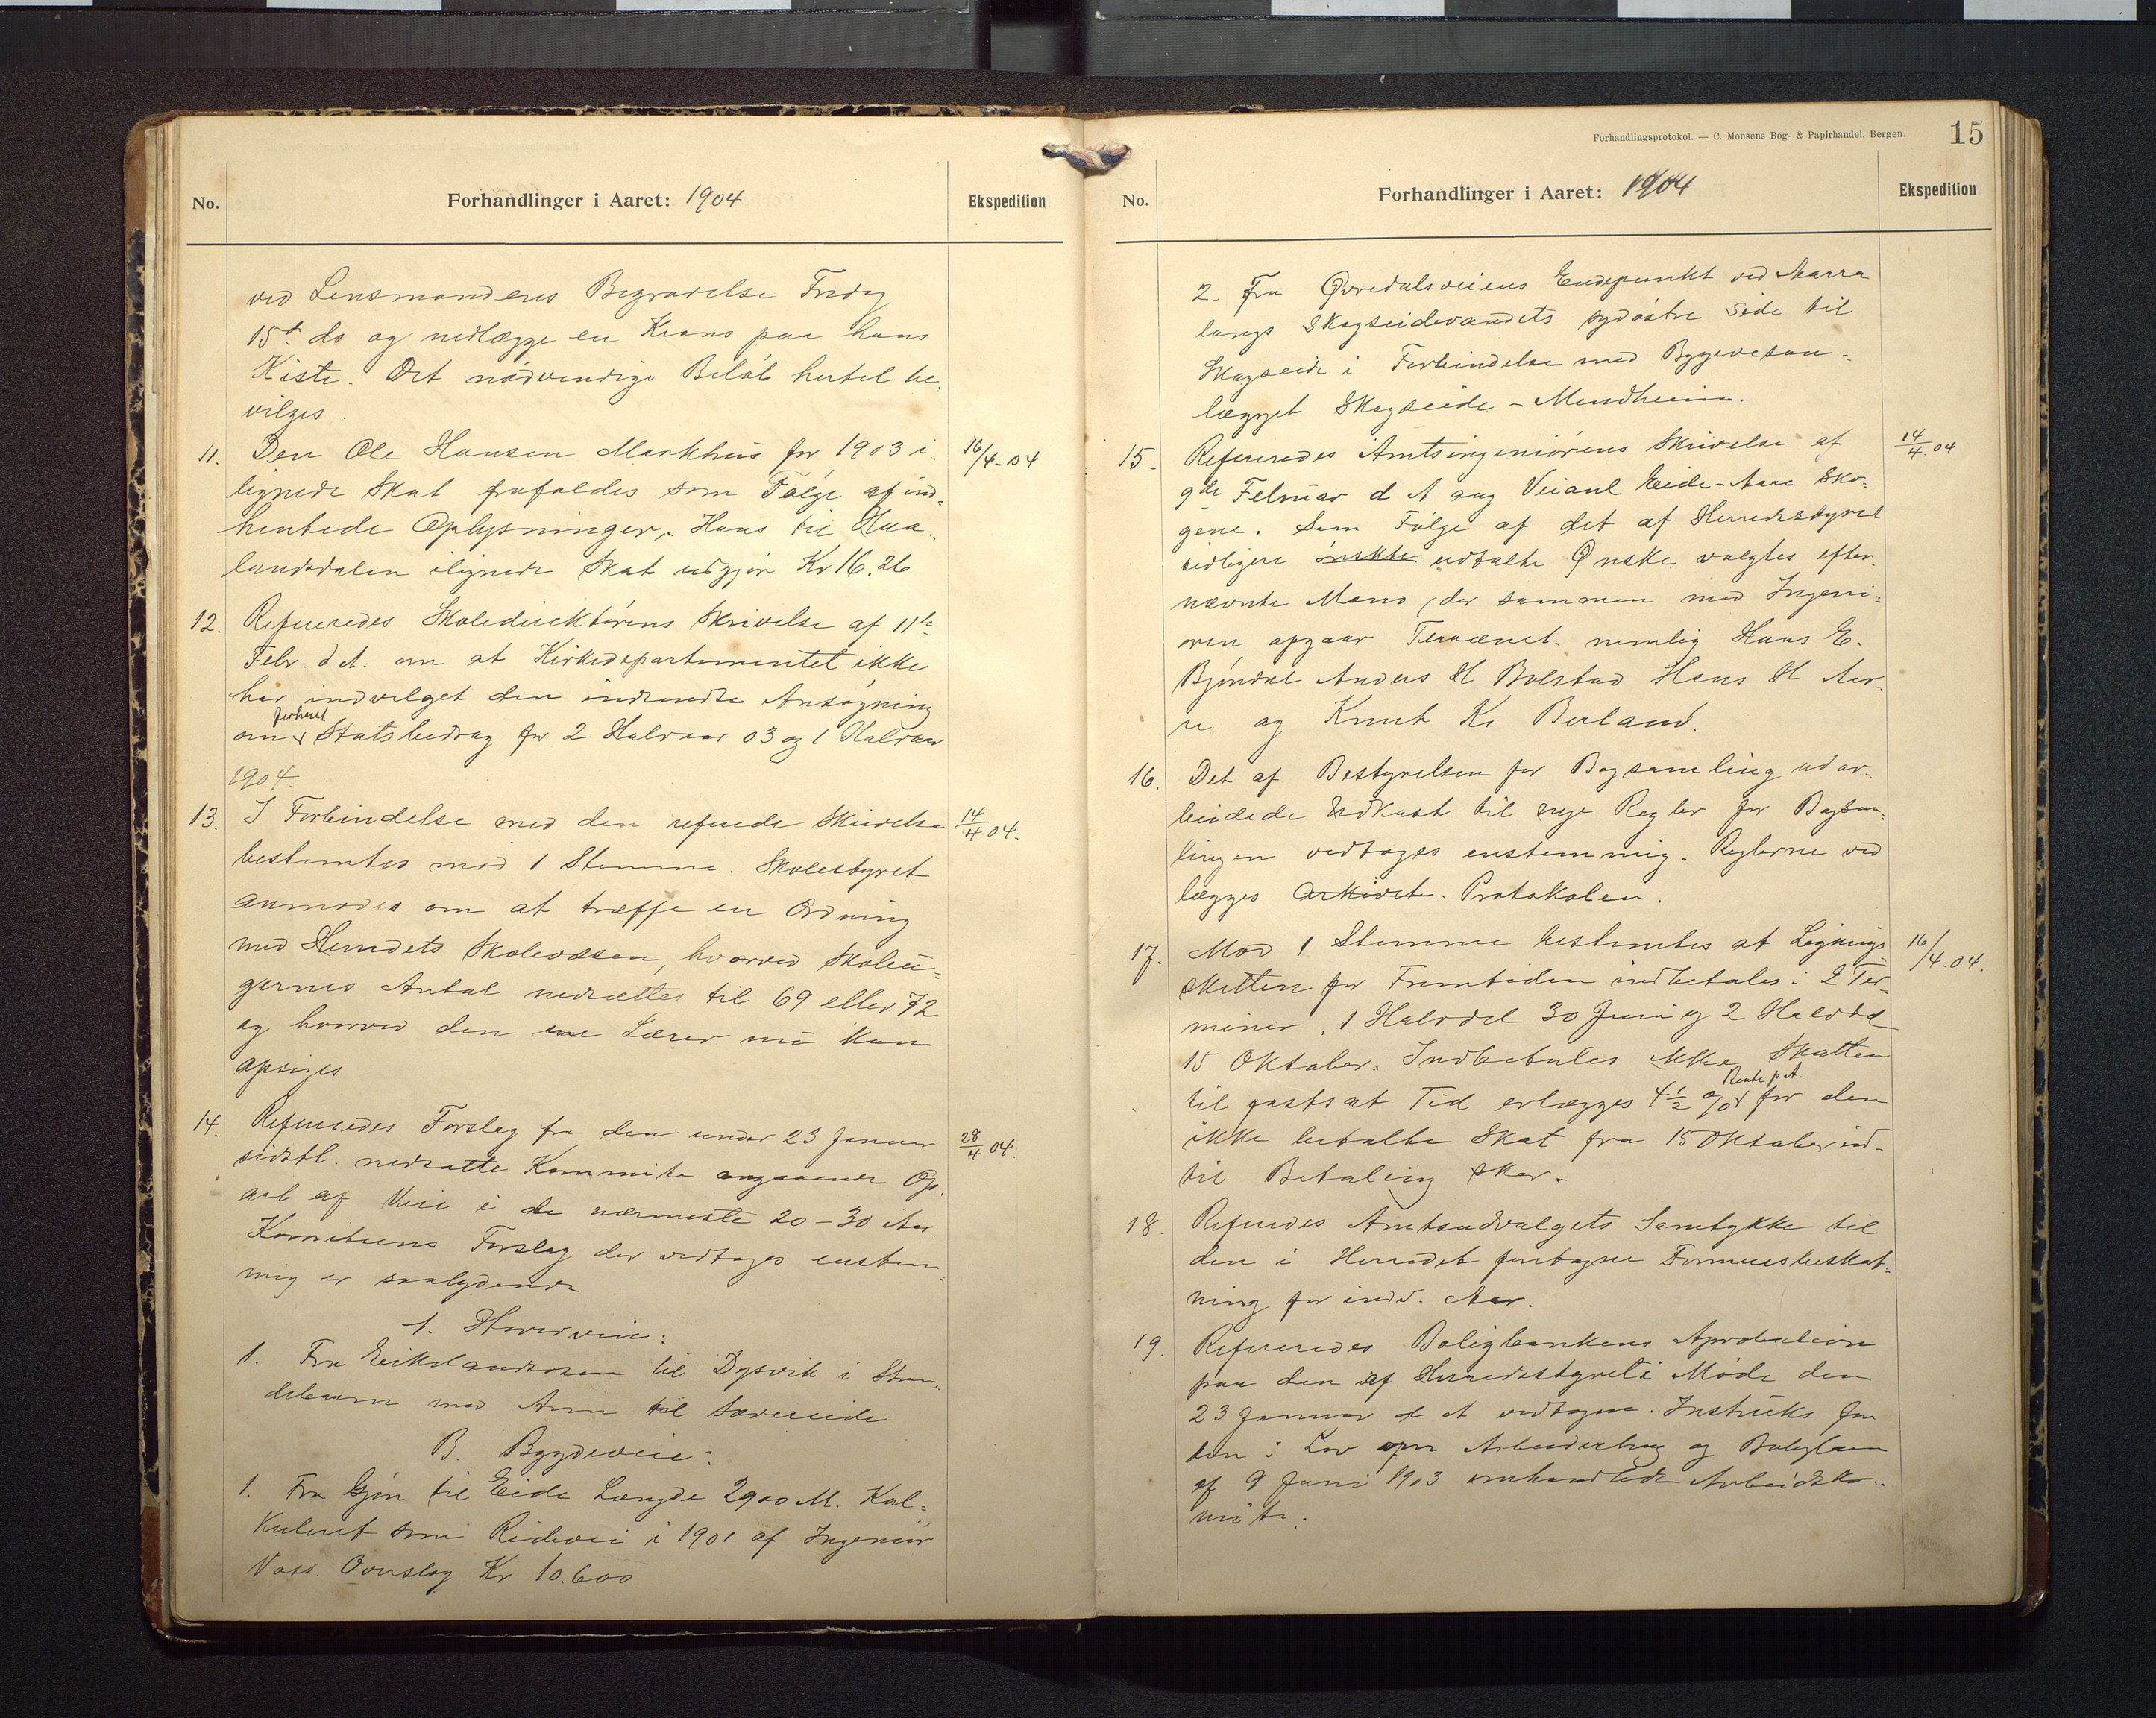 No.
Forhandlinger i Aaret: 1904
Ekspedition
ved Lensmandens Begravelse Fredag
15d. ds og nedlægge en Krans paa hans
Kiste. Det nødvendige Beløb hertil be-
vilges.
11. Den Ole Hansen Markhus for 1903 i- 16/4-04
lignede Skat frafaldes som Følge af ind-
hentede Oplysninger. Hans til Haa-
landsdalen ilignede Skat udgjør Kr 16.26
12. Refereredes Skoledirektørens Skrivelse af 11te
Febr. d A. om at Kirkedepartementet ikke
har indvilget den indsendte Ansøgning
om forhøiet Statsbidrag for 2 Halvaar 03 og 1 Halvaar
1904.
13. I Forbindelse med den referede Skrivelse 14/4 04.
bestemtes mod 1 Stemme. Skolestyret
anmodes om at træffe en Ordning
med Herredets Skolevæsen, hvorved Skoleu-
gernes Antal nedsættes til 69 eller 72
og hvorved den ene Lærer nu kan
opsiges
14. Refereredes Forslag fra den under 23 Januar 28/4 04.
sidstl. nedsatte Kommite angaaende Op-
arb af Veie i de nærmeste 20-30 Aar.
Komiteens Forslag der vedtages enstem-
mig er saalydende
A. Hovedveie:
1. Fra Eikelandsosen til Dysvik i Stran-
debarm med Arm til Sævareide
B. Bygdeveie:
1. Fra Gjøn til Eide Længde 2900 M. Kal-
kuleret som Ridevei i 1901 af Ingeniør
Vass. Overslag Kr 10.600
Forhandlingsprotokol. — C. Monsens Bog- & Papirhandel, Bergen.
15
No.
Forhandlinger i Aaret: 1904
Ekspedition
2. Fra Øvredalsveiens Endepunkt ved
langs Skogseidevandets sydøstre Side til
Skogseide i Forbindelse med
lægget Skogseide - Mundheim.
15. Refereredes Amtsingeniørens Skrivelse af 14/4 04
9de Februar d A ang Veianl Eide-Aare Sko-
gene. Som Følge af det af Herredsstyret
tidligere ønskte udtalte Ønske valgtes efter-
nævnte Mænd, der sammen med Ingeni-
øren opgaar Terrænet. nemlig Hans E.
Bjørndal Anders H Bolstad Hans H Aar-
re og Knut K. Berland.
16. Det af Bestyrelsen for Bogsamling udar-
beidede Udkast til nye Regler for Bogsam-
lingen vedtages enstemmig. Reglerne ved
lægges Arkivet. Protokolen.
17. Mod 1 Stemme bestemtes at Lignings- 16/4-04.
skatten for Fremtiden indbetales i 2 Ter-
miner, 1 Halvdel 30 Juni og 2 Halvdel
15 Oktober. Indbetales ikke Skatten
til fastsat Tid erlægges 4 1/2 % Rente p. A. for den
ikke betalte Skat fra 15 Oktober ind-
til Betaling sker.
18. Referedes Amtsudvalgets Samtykke til
den i Herredet foretagne Formuesbeskat-
ning for indev. Aar.
19. Refereredes Boligbankens Aprobation
paa den af Herredsstyret i Møde den
23 Januar d A vedtagne. Instruks for
den i Lov om Arbeiderbrug og Boliglaan
af 9 Juni 1903 omhandlede Arbeidsko-
mite.